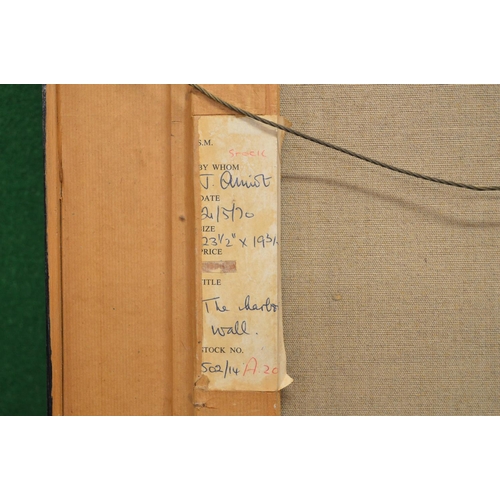 S.M.
Stock
BY WHOM
J. Amiot
DATE
21/5/70
SIZE
23½" x 19
PRICE
TITLE
The Harbo
Wall.
STOCK NO.
502/14 A 20